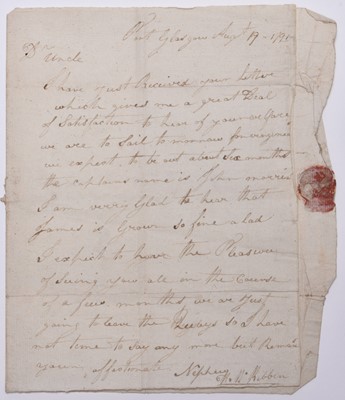 Port Glasgow Augt 19 - 
Dr Uncle
I have Just Received your letter
which gives me a great Deal
of Satisfaction to hear of your welfare
we are to Sail to morrow for virginia
we expect to be out about Six months
the captains name is morris
I am verry Glad to hear that
James is Grown so fine a lad
I expect to have the Pleasure
of Seeing you all in the Course
of a few months, we are Just
going to leave the Keeys so I have
not time to say any more but Remain
your affectionate Nephew